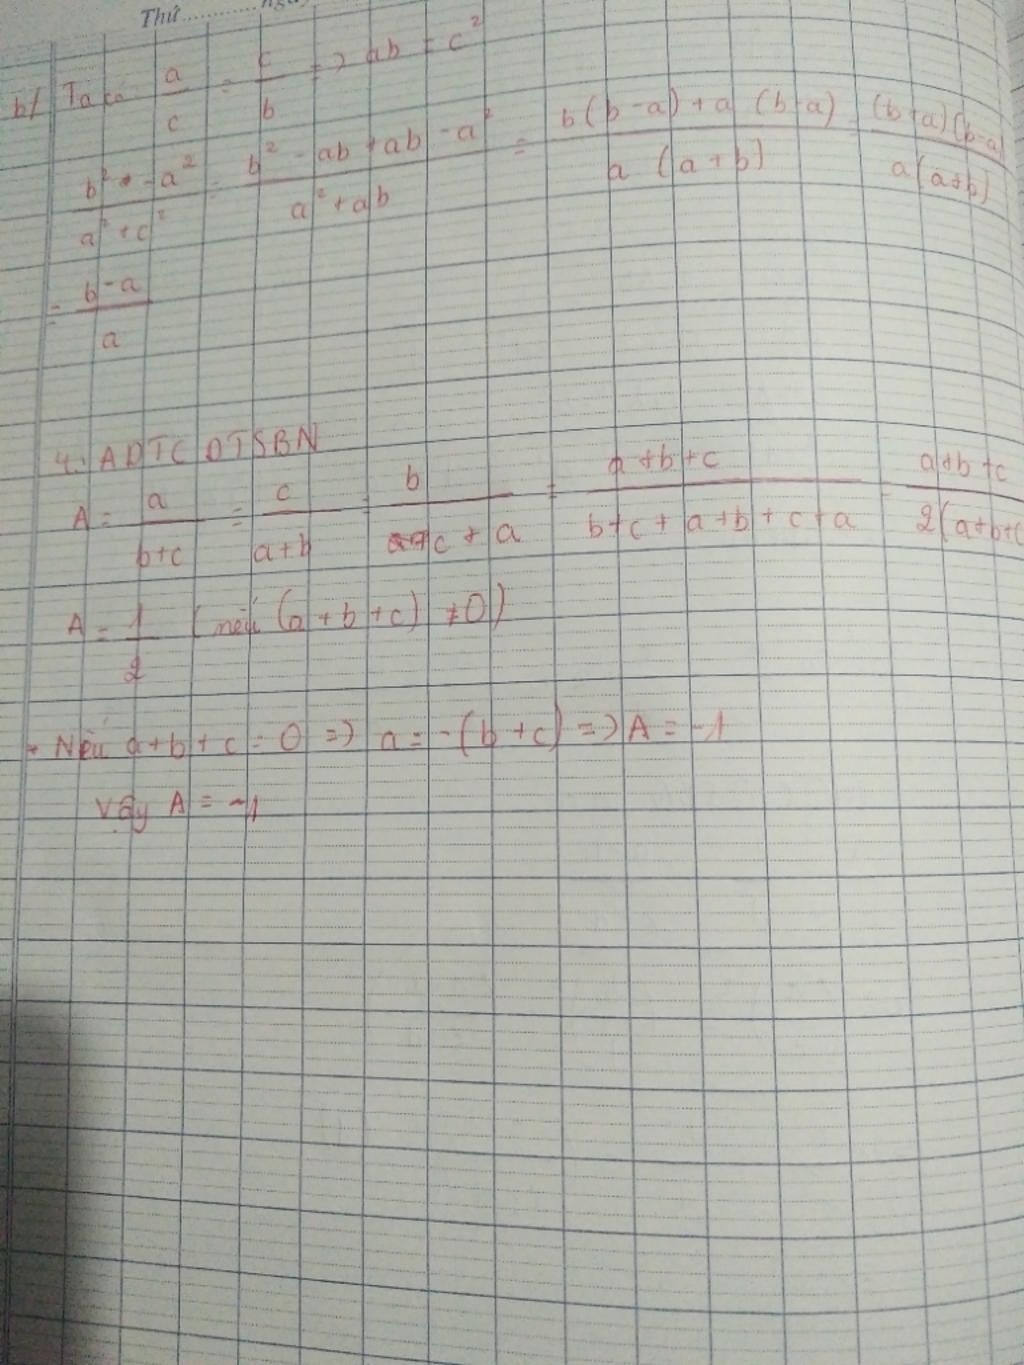 Thứ............ngày
b/ Ta có a/c = c/b => ab = c²
(b² - a²)/(a² + c²) = (b² - ab + ab - a²)/(a² + ab) = (b(b - a) + a(b - a))/(a(a + b)) = ((b + a)(b - a))/(a(a + b))
= (b - a)/a
4. ADTCDTSBN
A = a/(b + c) = c/(a + b) = b/(c + a) = (a + b + c)/(b + c + a + b + c + a) = (a + b + c)/(2(a + b + c
A = 1/2 (nếu (a + b + c) ≠ 0)
+ Nếu a + b + c = 0 => a = -(b + c) => A = -1
Vậy A = -1